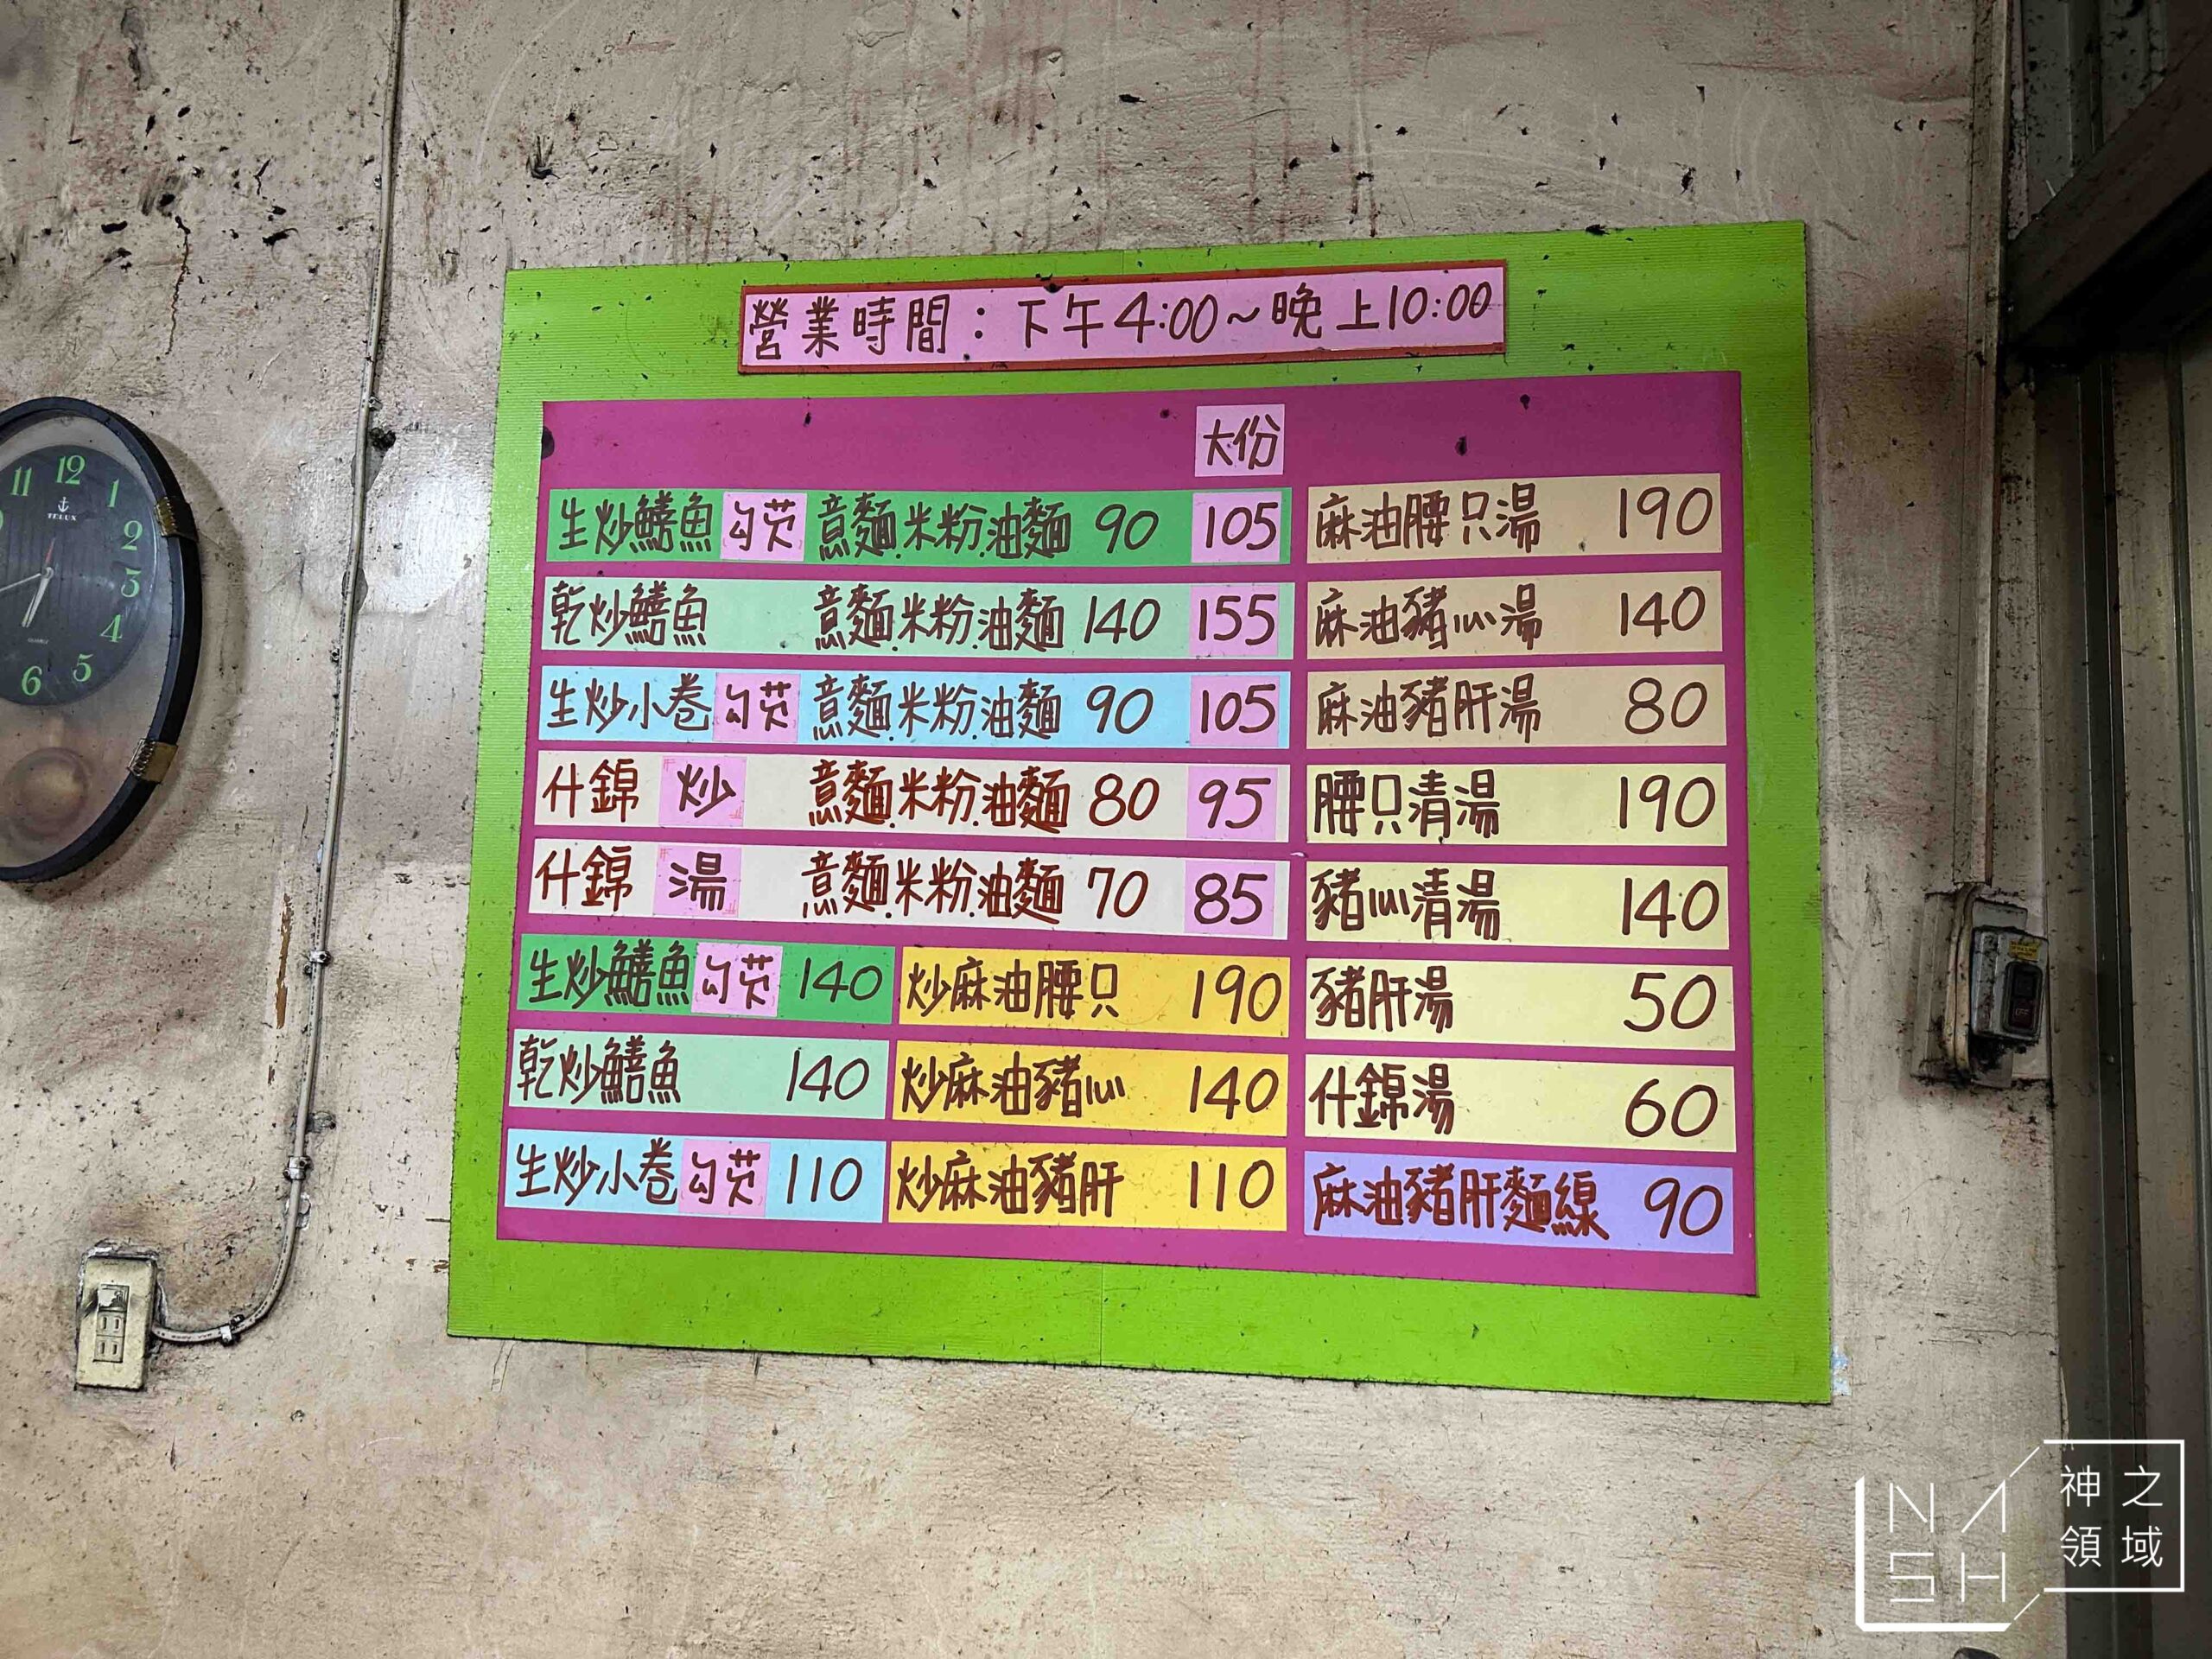 營業時間：下午4:00～晚上10:00
大份
生炒鱔魚 勾芡 意麵.米粉.油麵 90 105
乾炒鱔魚 意麵.米粉.油麵 140 155
生炒小卷 勾芡 意麵.米粉.油麵 90 105
什錦 炒 意麵.米粉.油麵 80 95
什錦 湯 意麵.米粉.油麵 70 85
生炒鱔魚 勾芡 140
乾炒鱔魚 140
生炒小卷 勾芡 110
炒麻油腰只 190
炒麻油豬心 140
炒麻油豬肝 110
麻油腰只湯 190
麻油豬心湯 140
麻油豬肝湯 80
腰只清湯 190
豬心清湯 140
豬肝湯 50
什錦湯 60
麻油豬肝麵線 90
11 12 1 2 3 4 5 6
OFF
NASH
神之領域